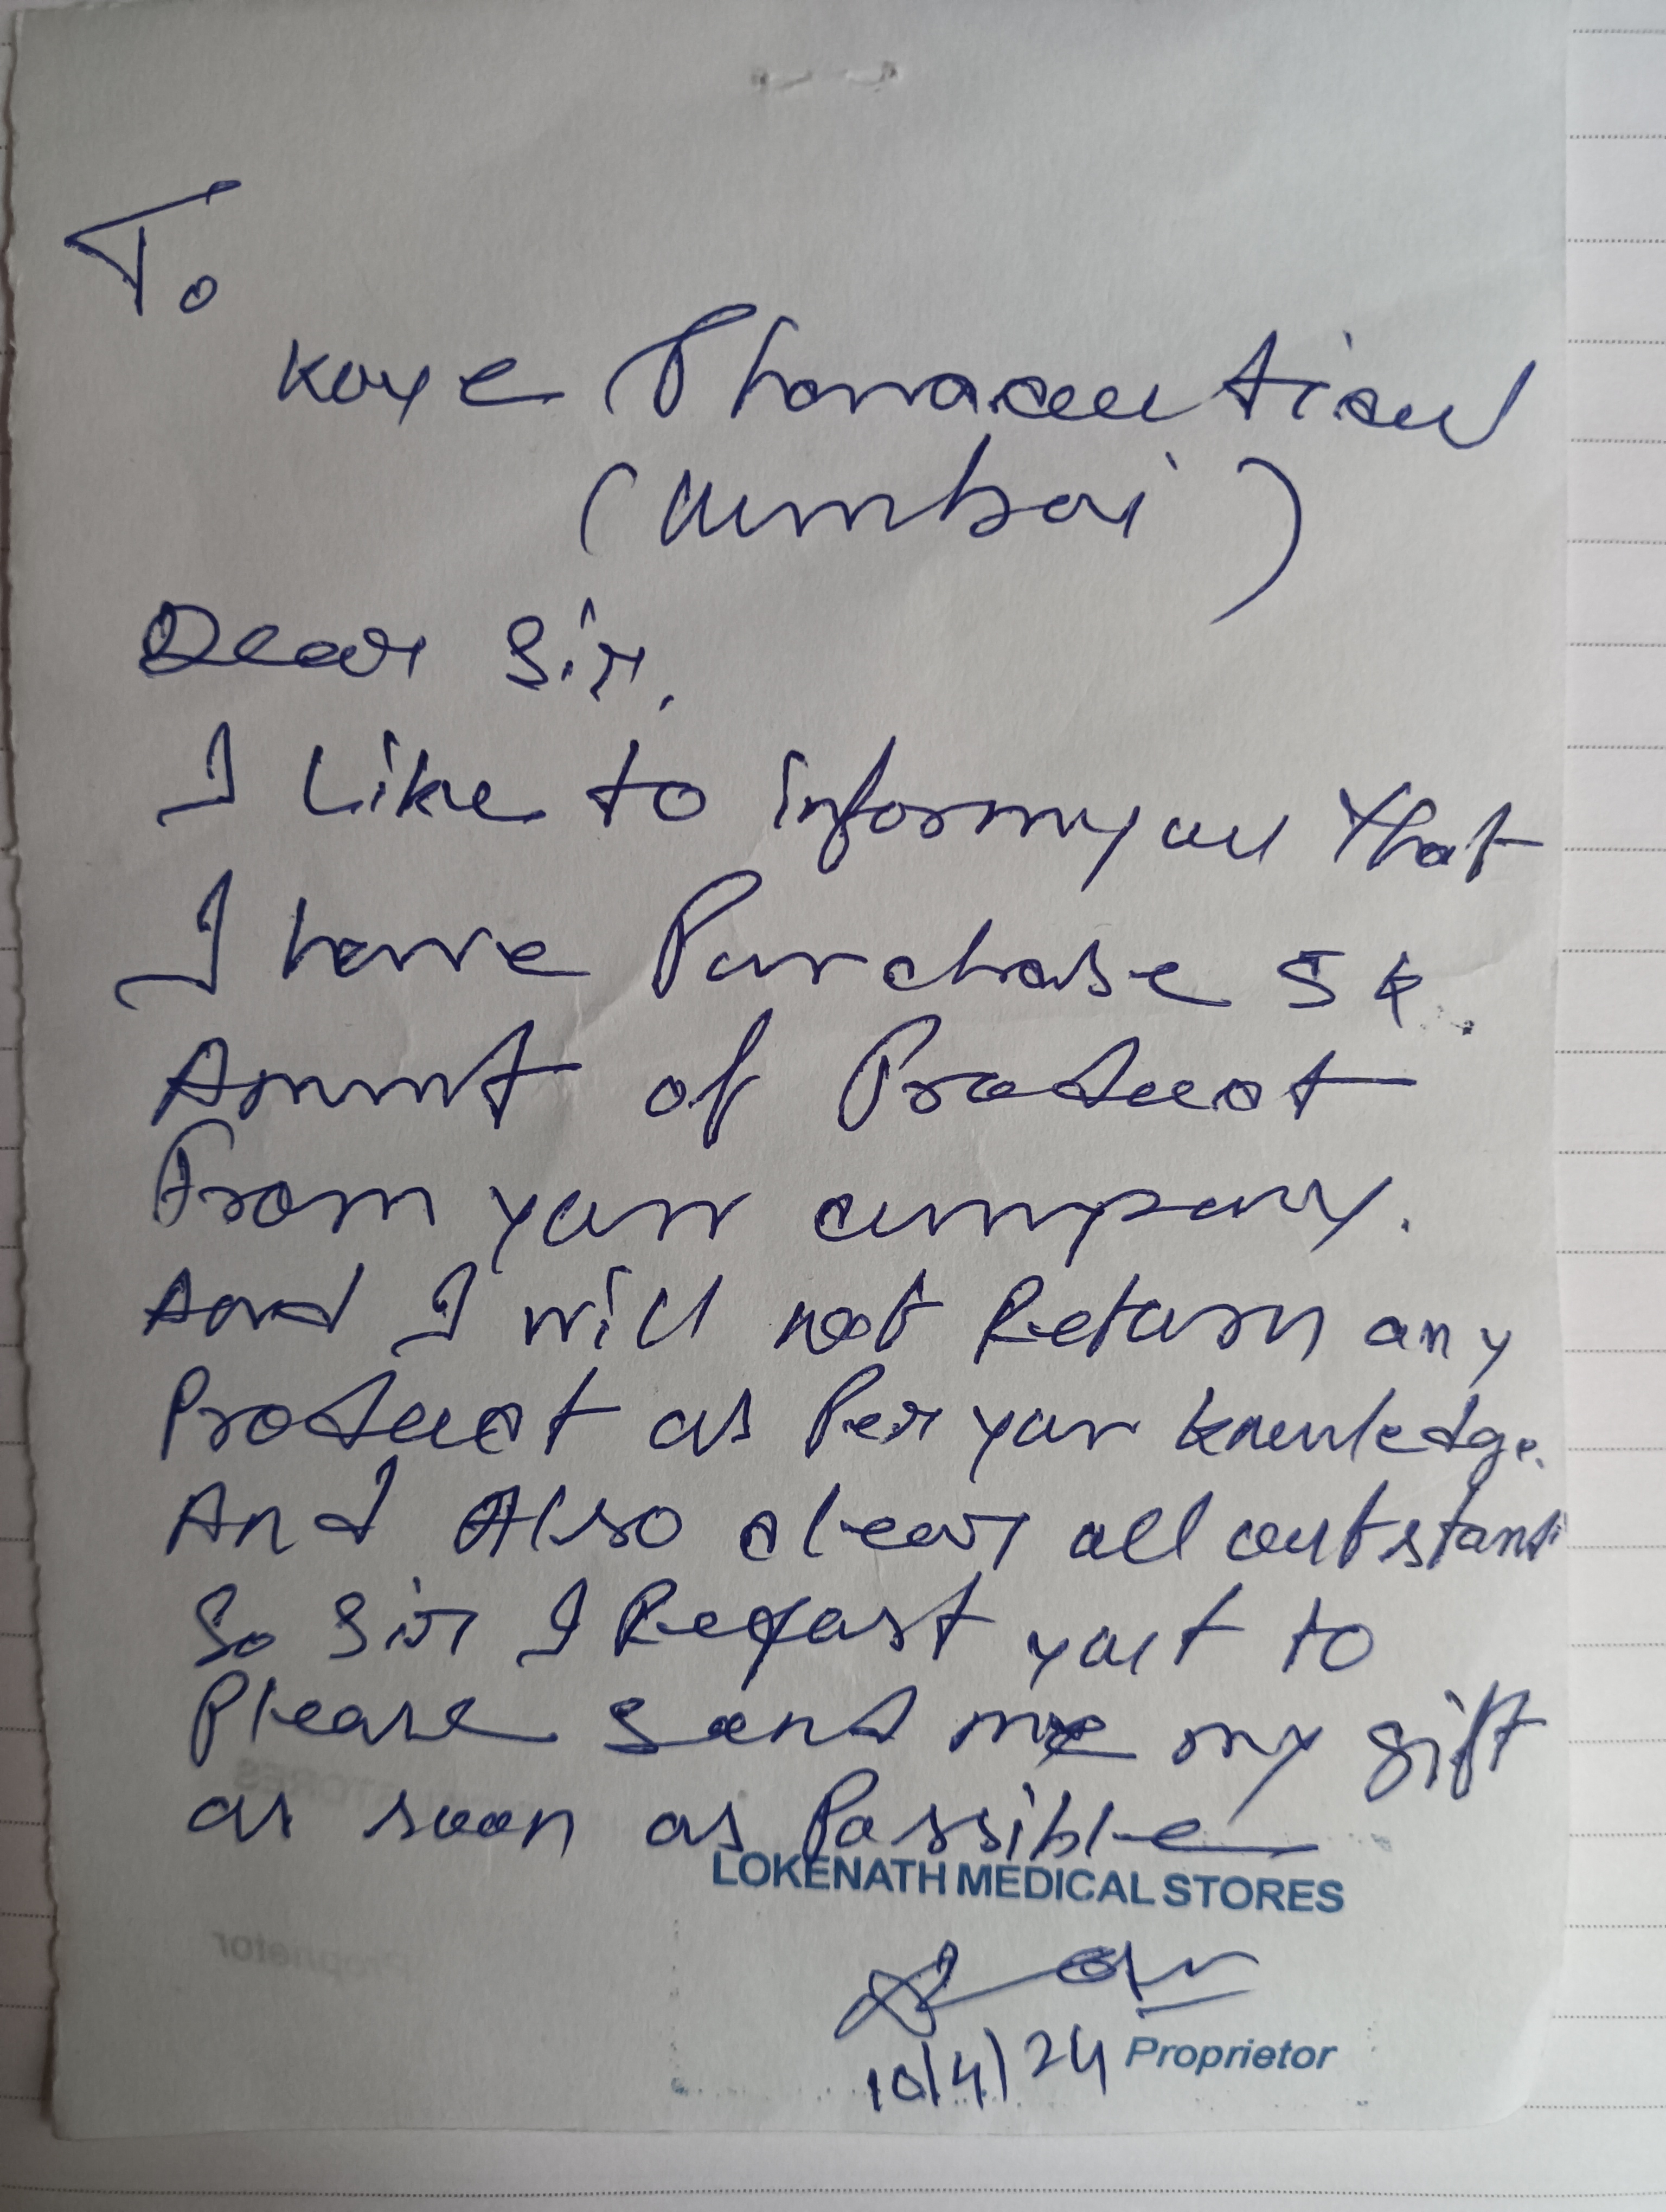 To
Koye Pharmaceutical
(Mumbai)
Dear Sir,
I Like to inform you that
I have Purchase 5k
Amount of Product
From your company.
And I will not Return any
Product as Per your knowledge.
And Also clear all outstand
So Sir I Request you to
Please send me my gift
as soon as Possible
LOKENATH MEDICAL STORES
10/4/24 Proprietor